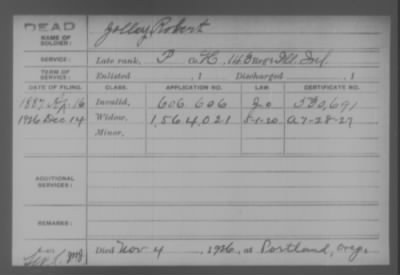 DEAD
NAME OF SOLDIER: Jolley, Robert
SERVICE: Late rank, P Co. K, 143 Reg't Ill. Inf.
TERM OF SERVICE: Enlisted , 1 Discharged , 1
DATE OF FILING. CLASS. APPLICATION NO. LAW CERTIFICATE NO.
1887 16 Invalid, 606.606 530,691
1926 Dec. 14 Widow, 1,564,021 5-1-20. A 7-28-27
Minor,
ADDITIONAL SERVICES:
REMARKS:
Died Nov. 4 , 1926, at Portland, Oreg.